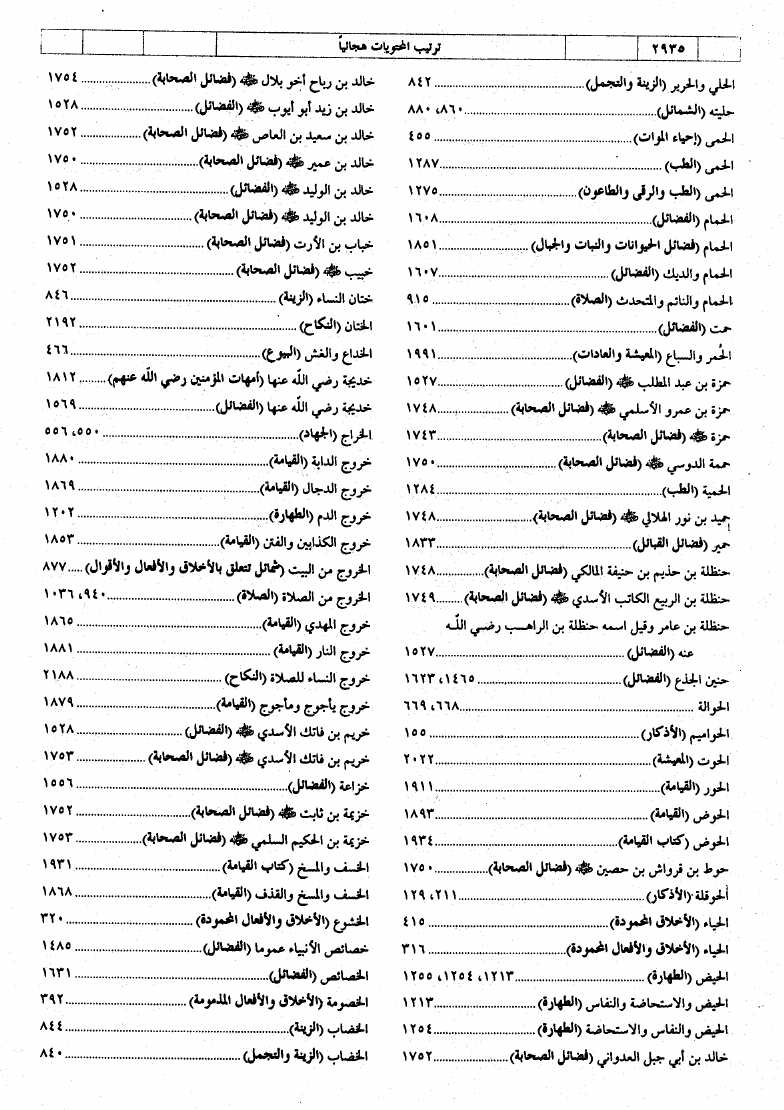 ٢٩٣٥
ترتيب المحتويات هجائياً
الحلي والحرير (الزينة والتجمل) ..... ٨٤٢
حليته (الشمائل) ..... ٨٦٠، ٨٨٠
الحمى (إحياء الموات) ..... ٤٥٥
الحمى (الطب) ..... ١٢٨٧
الحمى (الطب والرقى والطاعون) ..... ١٢٧٥
الحمام (الفضائل) ..... ١٦٠٨
الحمام (فضائل الحيوانات والنبات والجبال) ..... ١٨٥١
الحمام والديك (الفضائل) ..... ١٦٠٧
الحمام والنائم والمتحدث (الصلاة) ..... ٩١٥
حمت (الفضائل) ..... ١٦٠١
الحُمر والسباع (المعيشة والعادات) ..... ١٩٩١
حمزة بن عبد المطلب ﷺ (الفضائل) ..... ١٥٢٧
حمزة بن عمرو الأسلمي ﷺ (فضائل الصحابة) ..... ١٧٤٨
حمزة ﷺ (فضائل الصحابة) ..... ١٧٤٣
حممة الدوسي ﷺ (فضائل الصحابة) ..... ١٧٥٠
الحمية (الطب) ..... ١٢٨٤
حميد بن نور الهلالي ﷺ (فضائل الصحابة) ..... ١٧٤٨
حمير (فضائل القبائل) ..... ١٨٣٣
حنظلة بن حذيم بن حنيفة المالكي (فضائل الصحابة) ..... ١٧٤٨
حنظلة بن الربيع الكاتب الأسدي ﷺ (فضائل الصحابة) ..... ١٧٤٩
حنظلة بن عامر وقيل اسمه حنظلة بن الراهب رضي اللّٰه
عنه (الفضائل) ..... ١٥٢٧
حنين الجذع (الفضائل) ..... ١٤٦٥، ١٦٢٣
الحوالة ..... ٦٦٨، ٦٦٩
الحواميم (الأذكار) ..... ١٥٥
الحوت (المعيشة) ..... ٢٠٢٢
الحور (القيامة) ..... ١٩١١
الحوض (القيامة) ..... ١٨٩٣
الحوض (كتاب القيامة) ..... ١٩٣٤
حوط بن قرواش بن حصين ﷺ (فضائل الصحابة) ..... ١٧٥٠
الحوقلة (الأذكار) ..... ٢١١، ١٢٩
الحياء (الأخلاق المحمودة) ..... ٤١٥
الحياء (الأخلاق والأفعال المحمودة) ..... ٣١٦
الحيض (الطهارة) ..... ١٢١٣، ١٢٥٤، ١٢٥٥
الحيض والاستحاضة والنفاس (الطهارة) ..... ١٢١٣
الحيض والنفاس والاستحاضة (الطهارة) ..... ١٢٥٤
خالد بن أبي جبل العدواني (فضائل الصحابة) ..... ١٧٥٢
خالد بن رباح أخو بلال ﷺ (فضائل الصحابة) ..... ١٧٥٤
خالد بن زيد أبو أيوب ﷺ (الفضائل) ..... ١٥٢٨
خالد بن سعيد بن العاص ﷺ (فضائل الصحابة) ..... ١٧٥٢
خالد بن عمير ﷺ (فضائل الصحابة) ..... ١٧٥٠
خالد بن الوليد ﷺ (الفضائل) ..... ١٥٢٨
خالد بن الوليد ﷺ (فضائل الصحابة) ..... ١٧٥٠
خباب بن الأرت (فضائل الصحابة) ..... ١٧٥١
خبيب ﷺ (فضائل الصحابة) ..... ١٧٥٢
ختان النساء (الزينة) ..... ٨٤٦
الختان (النكاح) ..... ٢١٩٢
الخداع والغش (البيوع) ..... ٤٦٦
خديجة رضي اللّٰه عنها (أمهات المؤمنين رضي اللّٰه عنهم) ..... ١٨١٢
خديجة رضي اللّٰه عنها (الفضائل) ..... ١٥٦٩
الخراج (الجهاد) ..... ٥٥٠، ٥٥٦
خروج الدابة (القيامة) ..... ١٨٨٠
خروج الدجال (القيامة) ..... ١٨٦٩
خروج الدم (الطهارة) ..... ١٢٠٢
خروج الكذابين والفتن (القيامة) ..... ١٨٥٣
الخروج من البيت (شمائل تتعلق بالأخلاق والأفعال والأقوال) ..... ٨٧٧
الخروج من الصلاة (الصلاة) ..... ٩٤٠، ١٠٣٦
خروج المهدي (القيامة) ..... ١٨٦٥
خروج النار (القيامة) ..... ١٨٨١
خروج النساء للصلاة (النكاح) ..... ٢١٨٨
خروج يأجوج ومأجوج (القيامة) ..... ١٨٧٩
خريم بن فاتك الأسدي ﷺ (الفضائل) ..... ١٥٢٨
خريم بن فاتك الأسدي ﷺ (فضائل الصحابة) ..... ١٧٥٣
خزاعة (الفضائل) ..... ١٥٥٦
خزيمة بن ثابت ﷺ (فضائل الصحابة) ..... ١٧٥٢
خزيمة بن الحكيم السلمي ﷺ (فضائل الصحابة) ..... ١٧٥٣
الخسف والمسخ (كتاب القيامة) ..... ١٩٣١
الخسف والمسخ والقذف (القيامة) ..... ١٨٦٨
الخشوع (الأخلاق والأفعال المحمودة) ..... ٣٢٠
خصائص الأنبياء عموما (الفضائل) ..... ١٤٨٥
الخصائص (الفضائل) ..... ١٦٣١
الخصومة (الأخلاق والأفعال المذمومة) ..... ٣٩٢
الخضاب (الزينة) ..... ٨٤٤
الخضاب (الزينة والتجمل) ..... ٨٤٠